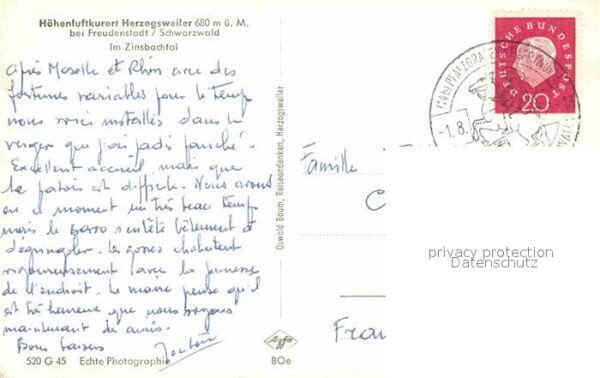 Höhenluftkurort Herzogsweiler 680 m ü. M.
bei Freudenstadt / Schwarzwald
Im Zinsbachtal
Après Moselle et Rhin avec des
fortunes variables pour le temps
nous voici installés dans le
verger que j'ai jadis fauché.
Excellent accueil mais que
le patois est difficile. Nous avons
en ce moment un très beau temps
mais le baro s'entête bêtement à
dégringoler. Les gosses chahutent
vigoureusement avec la jeunesse
de l'endroit. Le maire pense qu'il
est très heureux que nous soyons
maintenant des amis.
Bons baisers
520 G 45 Echte Photographie
Oswald Baum, Reiseandenken, Herzogsweiler
Agfa
BOe
DEUTSCHE BUNDESPOST
20
-1.8.
Famille
C
Fran
privacy protection
Datenschutz